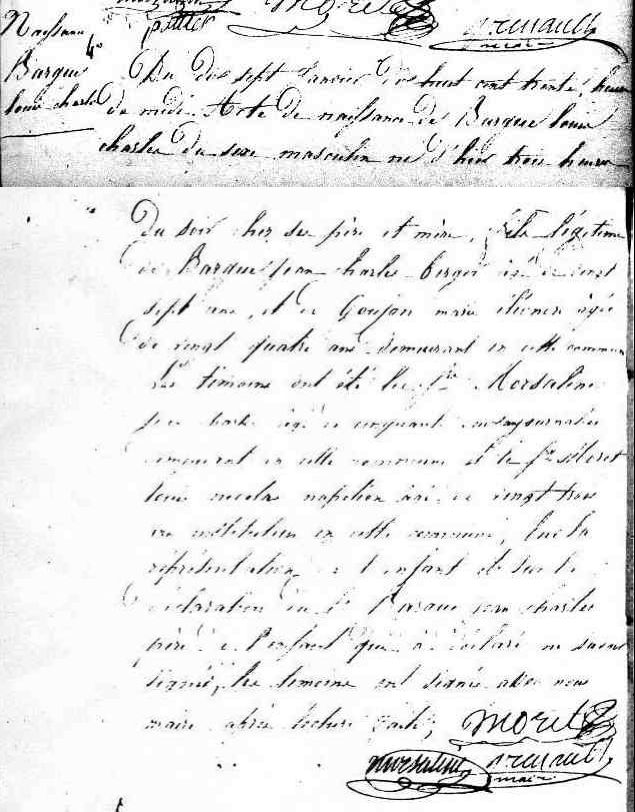 pottier
Morel
Arrnault
maire
Naissance
4e
Barque
louis charles
Du dix sept Janvier dix huit cent trente, heure
de midi Acte de naissance de Barque louis
charles du sexe masculin né d'hier trois heures
Du soir chez ses père et mère, fils légitime
de Barque jean charles berger âgé de vingt
sept ans, et de Goujon marie âgée
de vingt quatre ans demeurant en cette commune
Les témoins ont été le sr Morsaline
âgé de cinquante ans
demeurant en cette commune et le sr
louis nicolas napoléon âgé de vingt trois
ans en cette commune, sur la
représentation de l'enfant et sur la
déclaration du sr Barque jean charles
père de l'enfant qui a déclaré ne savoir
signer, les témoins ont signé avec nous
maire après lecture faite,
Morel
morsaline
maire